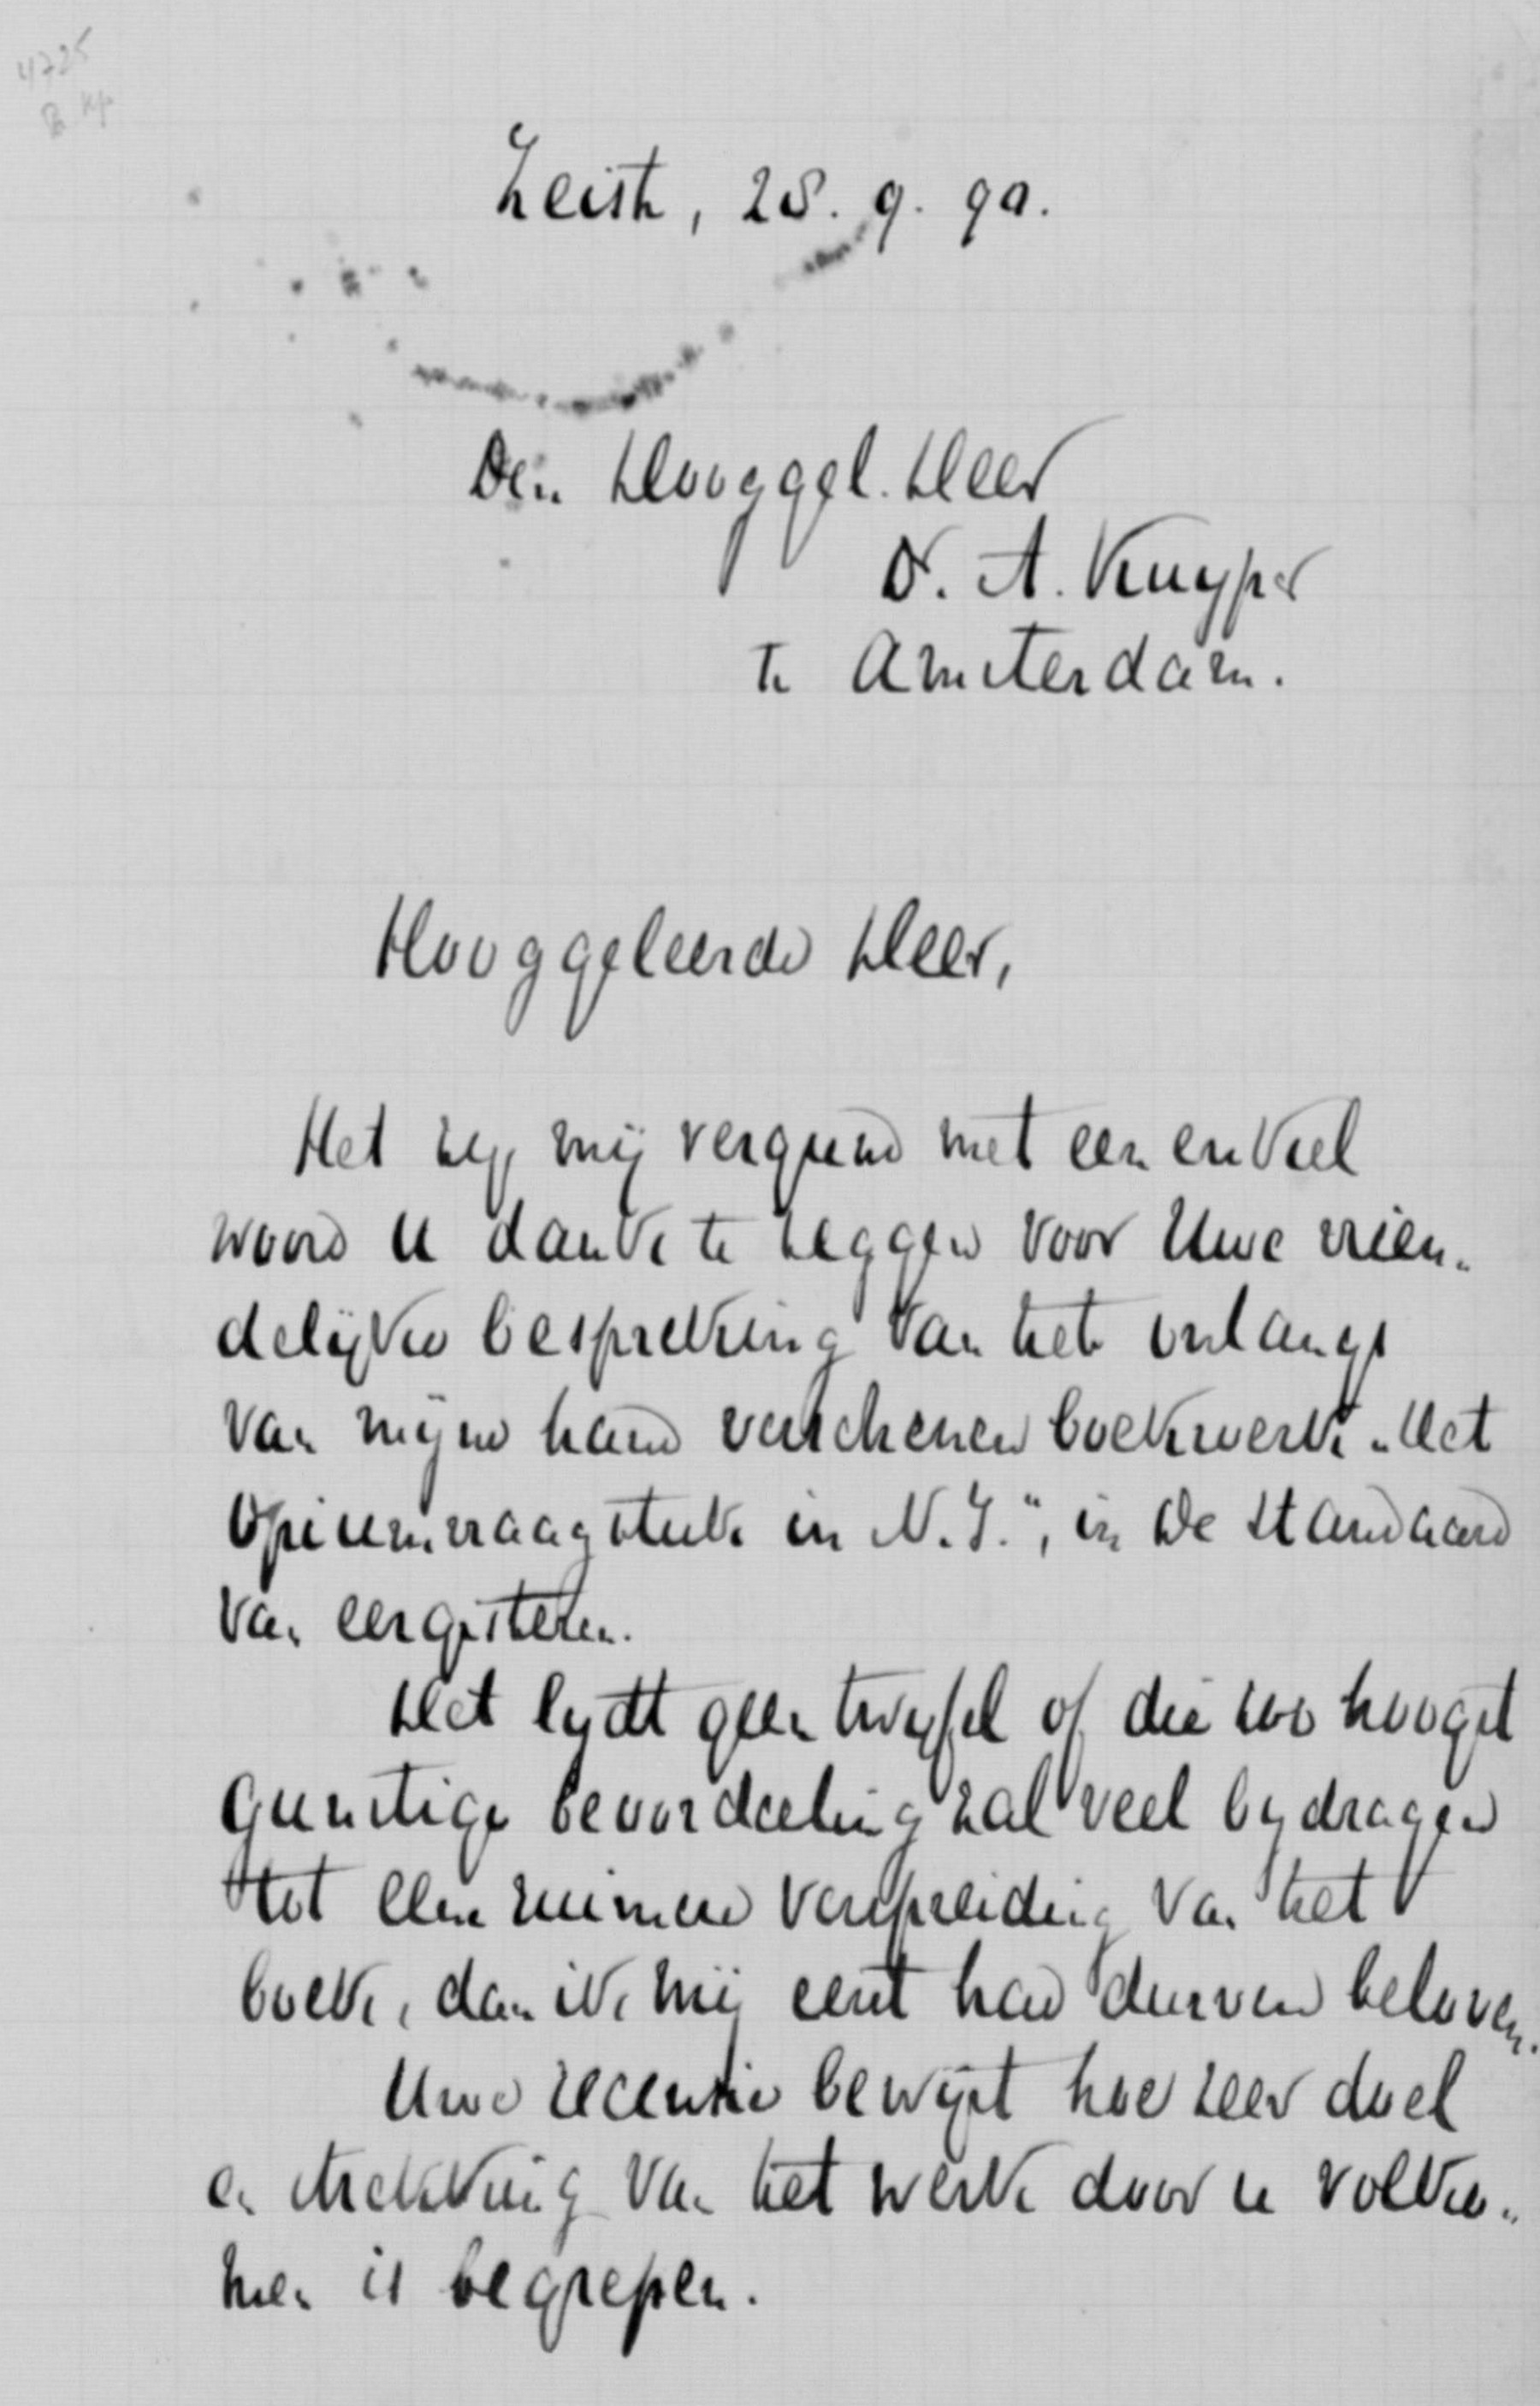 4725
Zeist, 28. 9. 90.
Den Hooggel. Heer
Dr. A. Kuyper
te Amsterdam.
Hooggeleerde Heer,
Het zij mij vergund met een enkel
woord U dank te zeggen voor Uwe vrien-
delijke bespreking van het onlangs
van mijne hand verschenen boekwerk „Het
Opiumvraagstuk in N.I.", in De Standaard
van eergisteren.
Het lydt geen twyfel of die zoo hoogst
gunstige beoordeeling zal veel bydragen
tot eene ruimere verspreiding van het
boek, dan ik mij eerst had durven beloven.
Uwe recensie bewijst hoe zeer doel
en strekking van het werk door u volko-
men is begrepen.